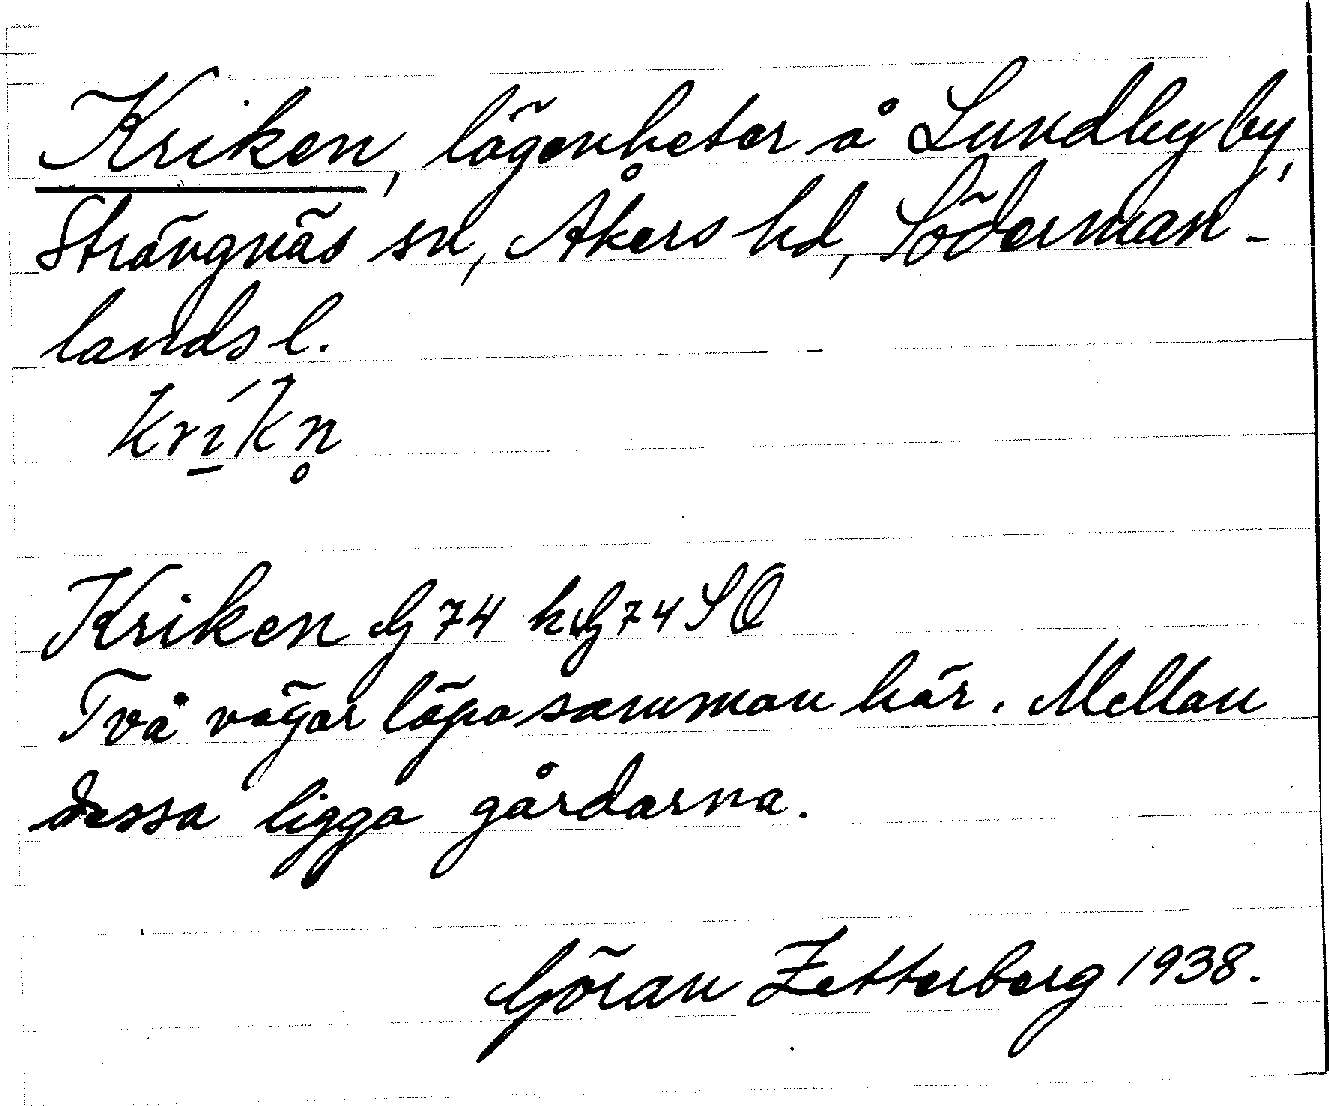 Kriken, lägenheter å Lundby by,
Strängnäs sn, Åkers hd, Söderman-
lands l.
krí̱kn̥
Kriken G 74 h G 74 S Ö
Två vägar löpa samman här. Mellan
dessa ligga gårdarna.
Göran Zetterberg 1938.